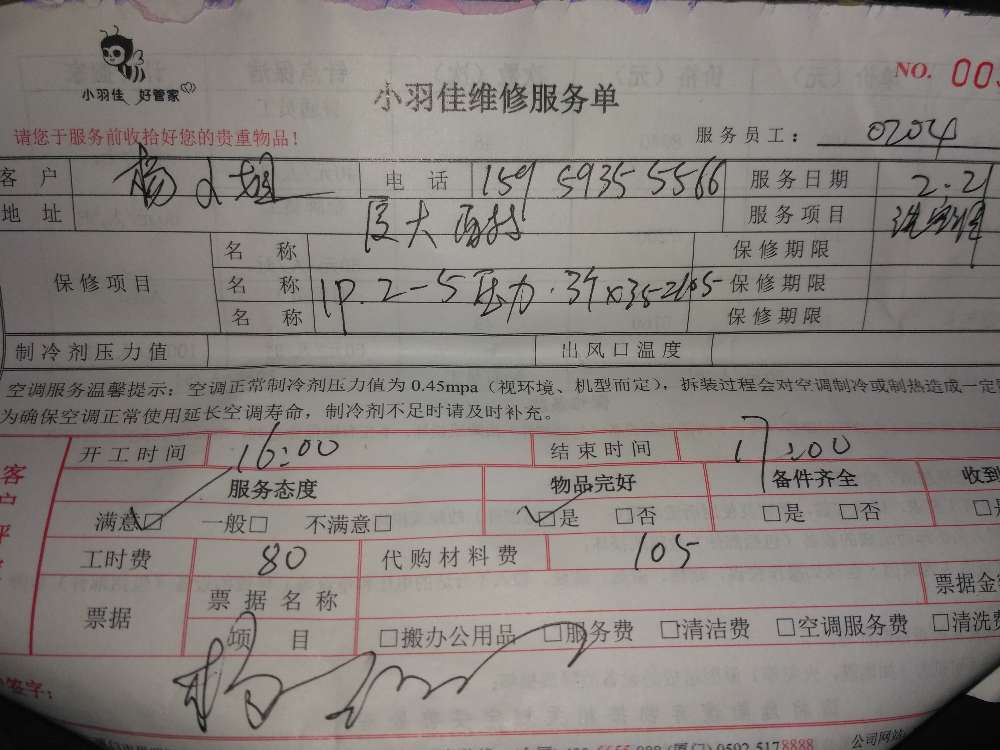 小羽佳 好管家
小羽佳维修服务单
NO. 00
请您于服务前收拾好您的贵重物品！
服务员工： 0204
客户 杨 小姐 电话 159 5935 5566 服务日期 2.21
地址 厦大西村 服务项目 洗空调
保修项目
名称 保修期限
名称 1P.2-5压力.34×35 保修期限
名称 保修期限
制冷剂压力值 出风口温度
空调服务温馨提示：空调正常制冷剂压力值为 0.45mpa（视环境、机型而定），拆装过程会对空调制冷或制热造成一定
为确保空调正常使用延长空调寿命，制冷剂不足时请及时补充。
客户评
开工时间 16:00 结束时间 17:00
服务态度 物品完好 备件齐全 收到
满意□ 一般□ 不满意□ □是 □否 □是 □否 □是
工时费 80 代购材料费 105
票据 票据名称 票据金
项目 □搬办公用品 □服务费 □清洁费 □空调服务费 □清洗费
签字：
(厦门) 0592-5178888 公司网站